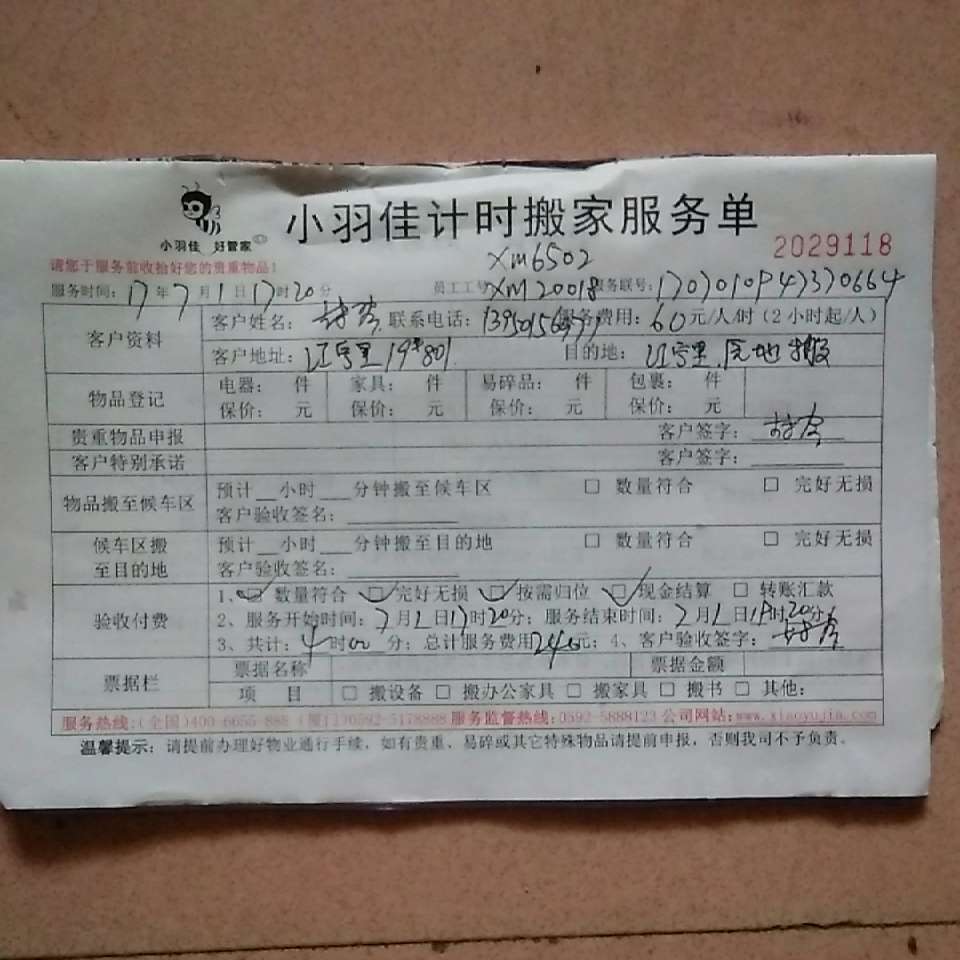 小羽佳计时搬家服务单
小羽佳 好管家
2029118
请您于服务前收拾好您的贵重物品！
XM6502
服务时间：17年7月1日17时20分 员工工号：XM20018 服务联号：1707010947370664
客户资料 客户姓名： 联系电话： 服务费用：60元/人/时（2小时起/人）
客户地址：江宁里19#801 目的地：江宁里，原地搬
物品登记 电器： 件 家具： 件 易碎品： 件 包裹： 件
保价： 元 保价： 元 保价： 元 保价： 元
贵重物品申报 客户签字：
客户特别承诺 客户签字：
物品搬至候车区 预计__小时___分钟搬至候车区 □ 数量符合 □ 完好无损
客户验收签名：
候车区搬至目的地 预计__小时___分钟搬至目的地 □ 数量符合 □ 完好无损
客户验收签名：
验收付费 1、☑ 数量符合 ☑ 完好无损 ☑ 按需归位 ☑ 现金结算 □ 转账汇款
2、服务开始时间：7月1日17时20分；服务结束时间：7月1日19时20分
3、共计：4时00分；总计服务费用240元；4、客户验收签字：
票据栏 票据名称 票据金额
项 目 □ 搬设备 □ 搬办公家具 □ 搬家具 □ 搬书 □ 其他：
服务热线：(全国)400-6655-888 (厦门)0592-5178888 服务监督热线：0592-5888123 公司网站：www.xiaoyujia.com
温馨提示：请提前办理好物业通行手续，如有贵重、易碎或其它特殊物品请提前申报，否则我司不予负责。